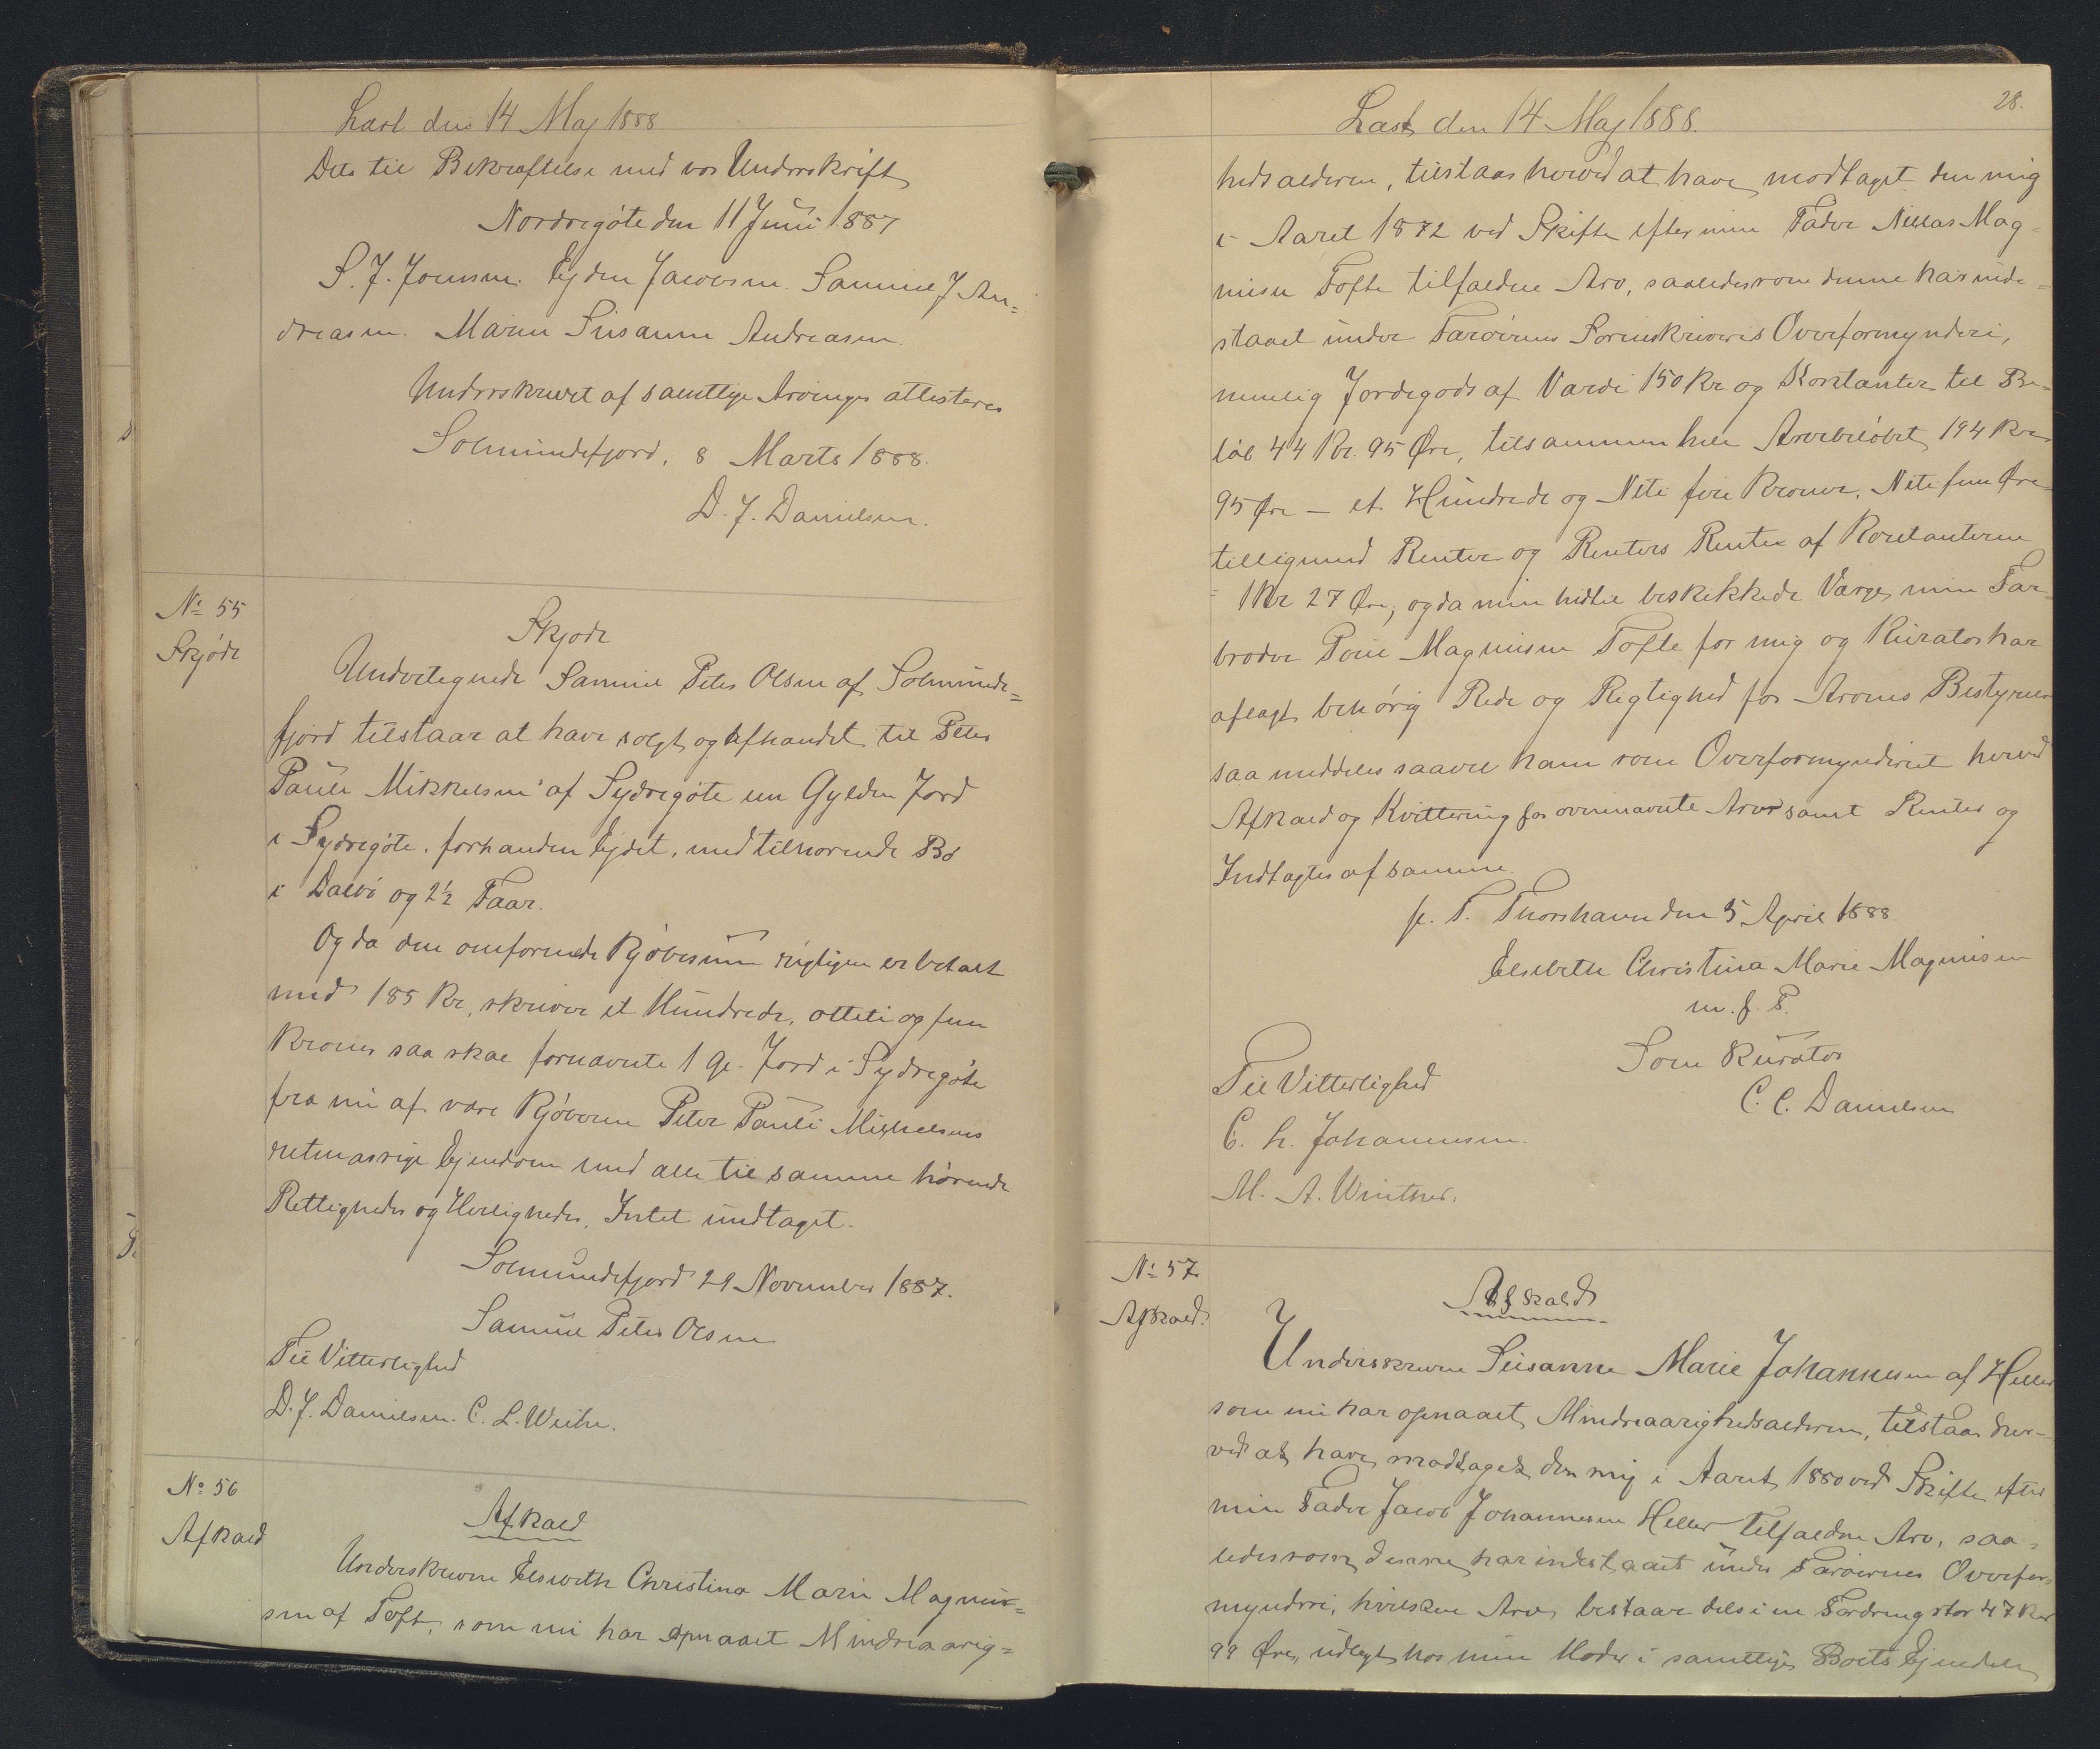 Læst den 14 Maj 1888
Dette til Bekræftelse med vor Underskrift
Nordregøte den 11 Juni 1887
S. J. Joensen. Ejden Jacobsen. Samuel J An=
dreasen. Maren Susanne Andreasen.
Underskrevet af samtlige Arvinger attesteres
Solmundefjord, 8 Marts 1888.
D. J. Danielsen.
No 55
Skjøde
Skjøde
Undertegnede Samuel Peter Olsen af Solmunde=
fjord tilstaar at have solgt og afhændet til Peter
Pauli Mikkelsen af Sydregøte en Gylden Jord
i Sydregøte, forhenden Ejdet, med tilhørende Bø
i Dalvi og 2½ Faar.
Og da den omforenede Kjøbesum rigtigen er betalt
med 185 Kr, skriver et Hundrede, otteti og fem
Kroner saa skal fornævnte 1 Gl. Jord i Sydregøte
fra nu af være Kjøberen Peter Pauli Mikkelsens
retmæssige Ejendom med alle til samme hørende
Rettigheder og Herligheder, Intet undtaget.
Solmundefjord 29 November 1887.
Samuel Peter Olsen
Til Vitterlighed
D. J. Danielsen. C. L. Weihe.
No 56
Afkald
Afkald
Underskrevne Elsebeth Christina Marie Magnus=
sen af Toft, som nu har opnaaet Mindreaarig=
28.
Læst den 14 Maj 1888.
hedsalderen, tilstaar herved at have modtaget den mig
i Aaret 1872 ved Skifte efter min Fader Niklas Mag=
nusen Tofte tilfaldne Arv, saaledes som denne har inde=
staaet under Færøernes Sorenskriveris Overformynderi,
nemlig Jordegods af Værdi 150 Kr og Kontanter til Be=
løb 44 Kr. 95 Øre, tilsammen hele Arvebeløbet 194 Kr
95 Øre — et Hundrede og Niti fire Kroner, Niti fem Øre
tilligemed Renter og Renters Rente af Kontanterne
= 1 Kr 27 Øre, og da min hidtil beskikkede Værge, min Far=
broder Poul Magnusen Tofte for mig og Kurator har
aflagt behørig Rede og Rigtighed for Arvens Bestyrelse
saa meddeles saavel ham som Overformynderiet herved
Afkald og Kvittering for ovennævnte Arv samt Renter og
Indtægter af samme.
p. T. Thorshavn den 5 April 1888
Elsebeth Christina Marie Magnusen
m. f. P.
Som Kurator
C. C. Danielsen
Til Vitterlighed
C. L. Johannesen.
M. A. Winther.
No 57
Afkald.
Afkald
Underskrevne Susanne Marie Johannesen af Heller
som nu har opnaaet Mindreaarighedsalderen, tilstaar her=
ved at have modtaget den mig i Aaret 1880 ved Skifte efter
min Fader Jacob Johannesen Heller tilfaldne Arv, saa=
ledes som denne har indestaaet under Færøernes Overfor=
mynderi, hvilken Arv bestaar dels i en Fordring stor 47 Kr
99 Øre, udlagt hos min Moder i samtlige Boets Ejendele